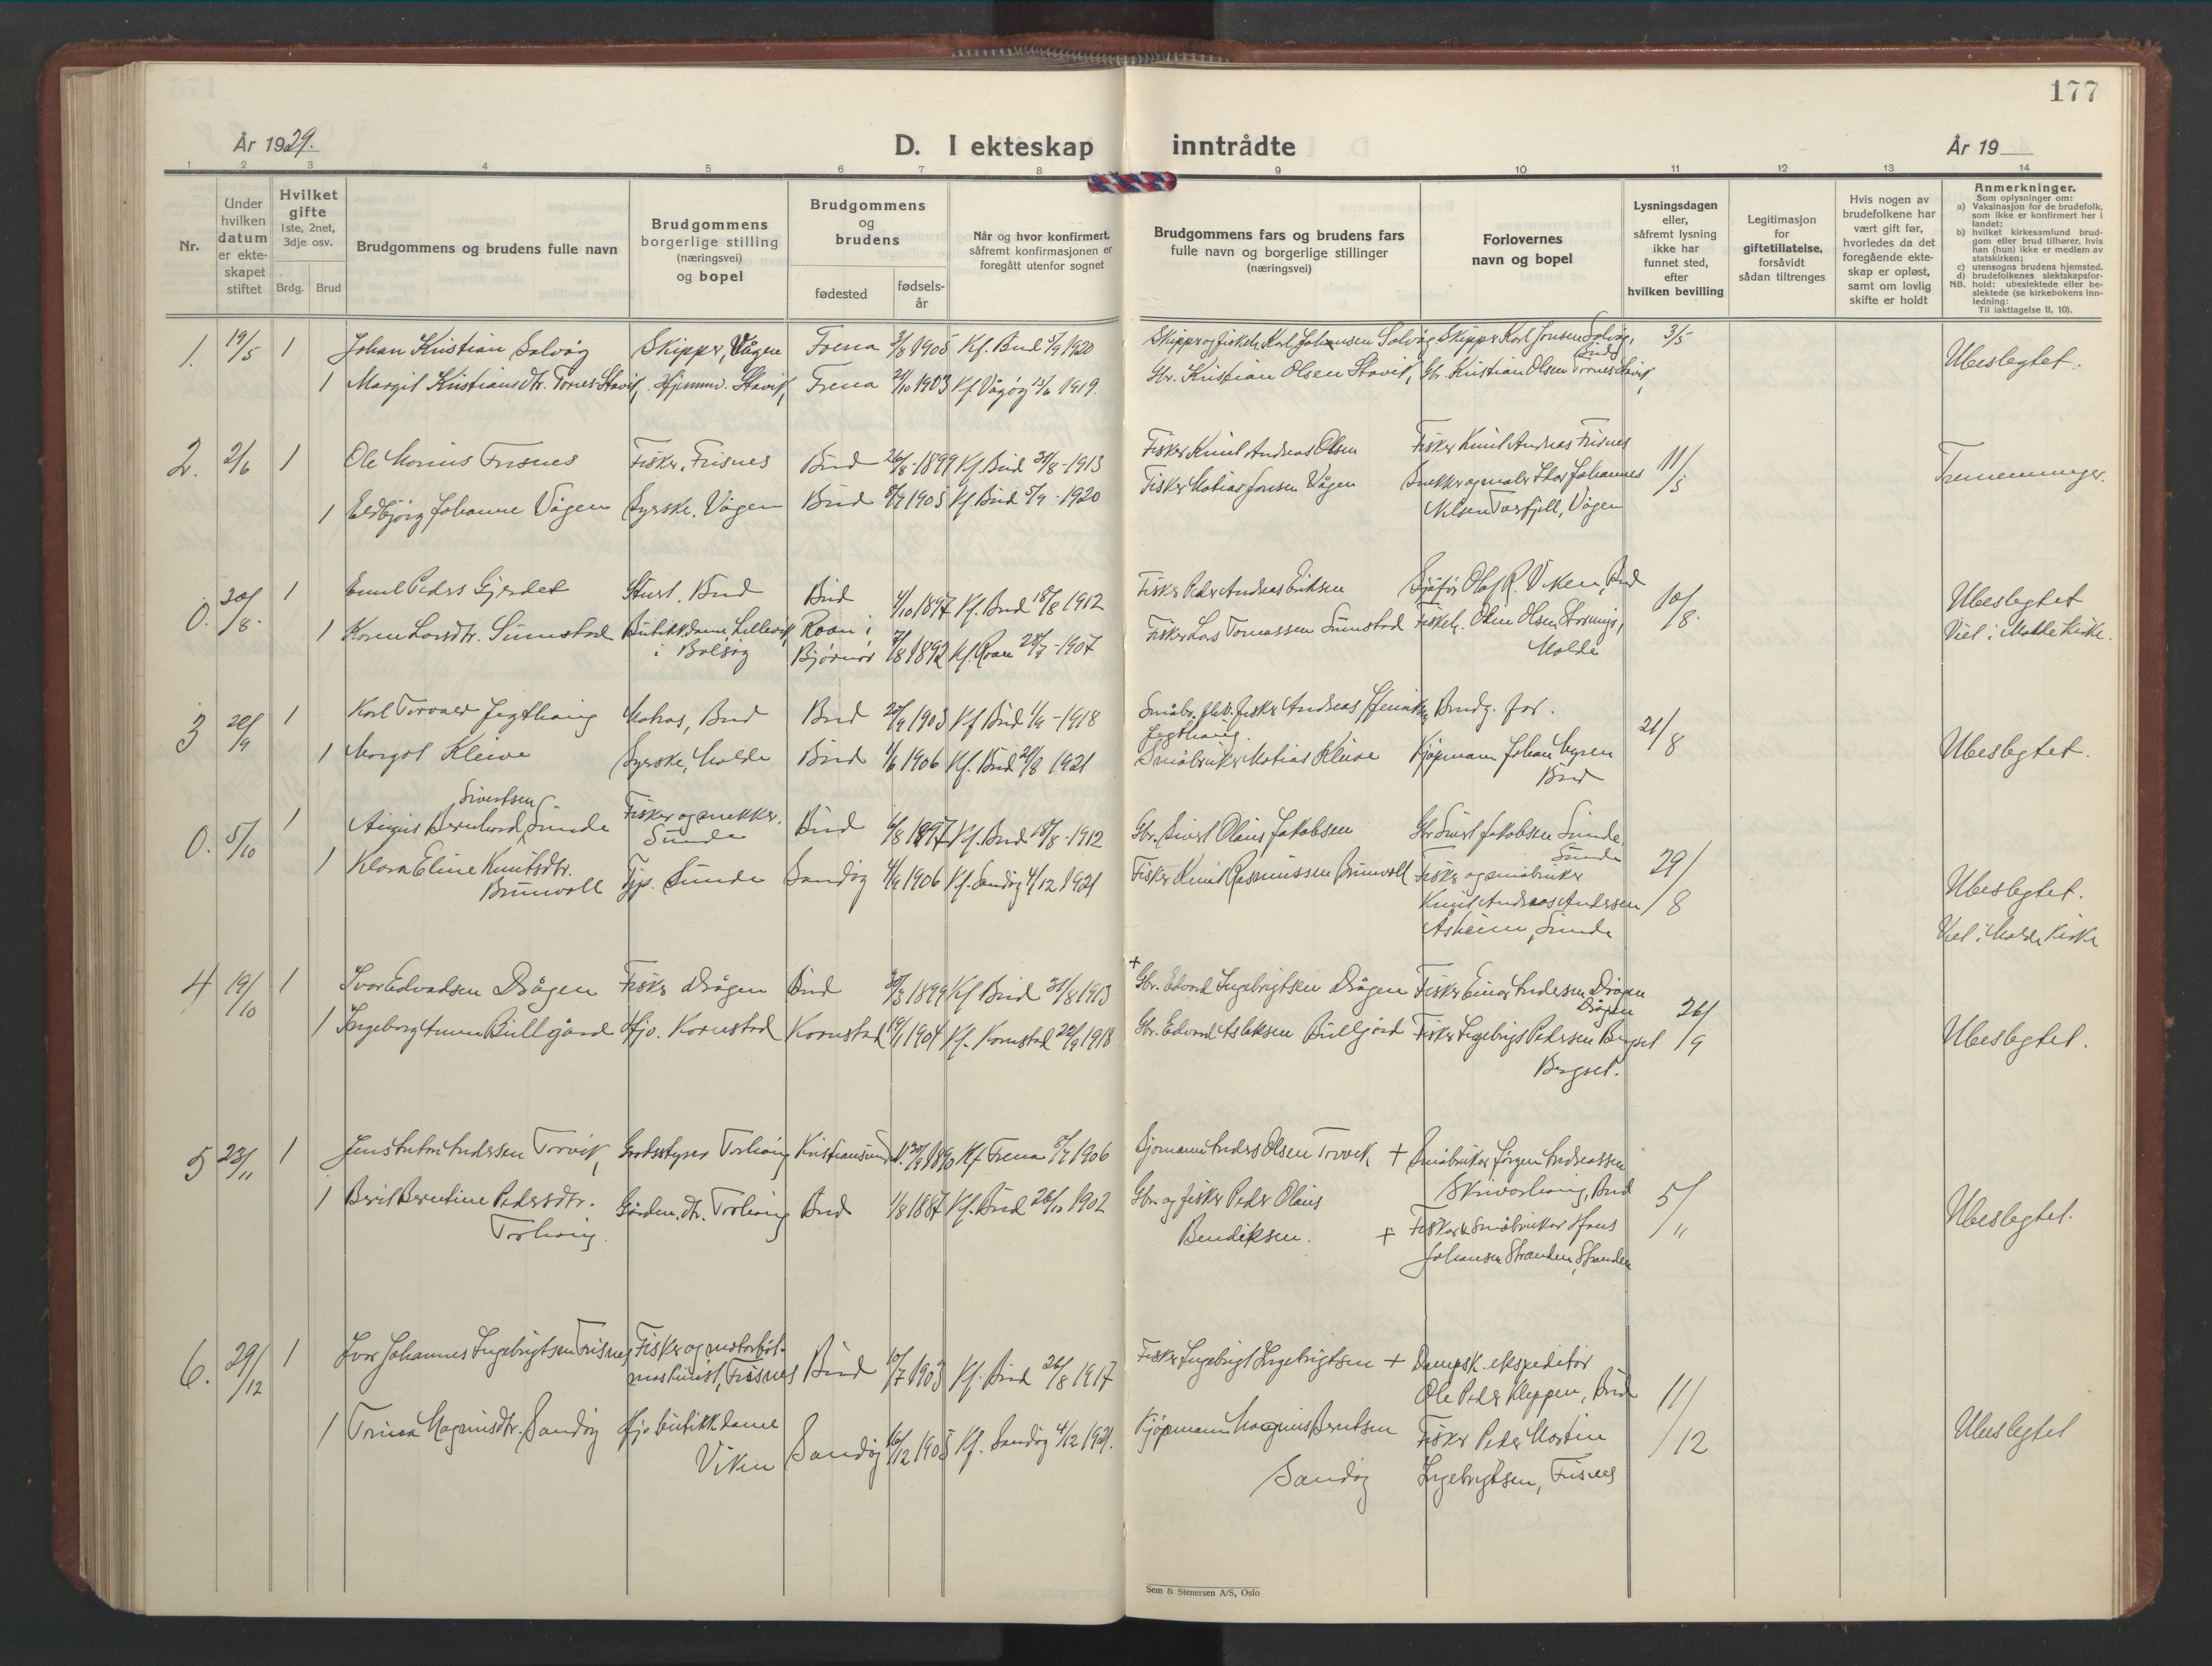 177
År 1929.
D. I ekteskap inntrådte
År 19
1 2 3 4 5 6 7 8 9 10 11 12 13 14
Nr.
Under hvilken datum er ekte-skapet stiftet
Hvilket gifte 1ste, 2net, 3dje osv.
Brdg. Brud
Brudgommens og brudens fulle navn
Brudgommens borgerlige stilling (næringsvei) og bopel
Brudgommens og brudens
fødested
fødsels-år
Når og hvor konfirmert, såfremt konfirmasjonen er foregått utenfor sognet
Brudgommens fars og brudens fars fulle navn og borgerlige stillinger (næringsvei)
Forlovernes navn og bopel
Lysningsdagen eller, såfremt lysning ikke har funnet sted, efter hvilken bevilling
Legitimasjon for giftetillatelse, forsåvidt sådan tiltrenges
Hvis nogen av brudefolkene har vært gift før, hvorledes da det foregående ekte-skap er opløst, samt om lovlig skifte er holdt
Anmerkninger.
Som oplysninger om:
a) Vaksinasjon for de brudefolk, som ikke er konfirmert her i landet;
b) hvilket kirkesamfund brud-gom eller brud tilhører, hvis han (hun) ikke er medlem av statskirken;
c) utensogns brudens hjemsted,
d) brudefolkenes slektskapsfor-hold: ubeslektede eller be-slektede (se kirkebokens inn-ledning:
NB.
Til iakttagelse II. 10).
1. 19/5 1 Johan Kristian Solvåg Skipper, Vågen Frena 3/8 1905 Kf. Bud 5/9 1920 Skipper og fiskeh. Karl Johansen Solvåg Skipper Karl Jonsen Solvåg, Bud 3/5 Ubeslegtet.
1 Margit Kristiansdtr. Tornes Stavik, Hjemmev. Stavik, Frena 21/10 1903 Kf. Vågøy 15/6 1919. Gbr. Kristian Olsen Stavik, Gbr. Kristian Olsen Tornes Stavik,
2. 2/6 1 Ole Marius Frisnes Fisker, Frisnes Bud 26/8 1899 Kf. Bud 31/8-1913 Fisker Knut Andreas Olsen Fisker Knut Andreas Frisnes 11/5 Tremenninger.
1 Eldbjørg Johanne Vågen Syerske, Vågen Bud 8/7 1905 Kf. Bud 5/9-1920 Fisker Matias Jonsen Vågen Snekker og maler Johannes
Nilsen Torfjell, Vågen
0. 20/8. 1 Emil Peders Gjerdet Stuert, Bud Bud 4/10 1897 Kf. Bud 18/8 1912 Fisker Peder Andreas Eriksen Sjåfør Olaf R. Viken, Bud 10/8. Ubeslegtet
1 Karen Larsdtr. Sumstad Butikkdame, Lillevik i Bolsøy Roan i Bjørnør 1892 Kf. Roan 28/7-1907 Fisker Lars Tomassen Sumstad Fiskeh. Olsen Molde Viet i Molde Kirke.
3 20/9 1 Karl Torvald Jegthaug Matros, Bud Bud 28/9 1903 Kf. Bud 1/9-1918 Småbr. fisker Andreas Jegthaug. Brudg. far. 21/8
1 Margot Kleive Syerske, Molde Bud 1/6 1906 Kf. Bud 21/8 1921 Småbruker Matias Kleive Kjøpmann Johan Myren Bud Ubeslegtet.
0. 5/10 1 August Bernhard Sivertsen Sunde Fisker og snekker. Sunde Bud 6/8 1897 Kf. Bud 18/8-1912 Gbr. Sivert Olaus Jakobsen Gbr Sivert Jakobsen Sunde, Sunde 29/8
1 Klara Eline Knutsdtr. Brunvoll Tjp. Sunde Sandøy 4/9 1906 Kf. Sandøy 4/12 1921 Fisker Knut Rasmussen Brunvoll Fisker og småbruker Ubeslegtet.
Knut Andreas Andersen
Åsheim, Sunde Viet i Molde kirke
4 19/10 1 Ivar Edvardsen Drågen Fisker Drågen Bud 30/3 1899 Kf. Bud 31/8 1913 + Gbr. Edvard Ingebrigtsen Drågen Fisker Einar Andersen Drågen Drågen 26/9
1 Ingeborg Anna Bullgård Hjv. Kornstad Kornstad 19/1 1904 Kf. Kornstad 22/9 1918 Gbr. Edvard Aslaksen Bullgård Fisker Ingebrigt Pedersen Bergset Ubeslegtet.
Bergset.
5 23/11 1 Jens Anton Andersen Torvik, Torhaug Kristiansund N. 20/9 1890 Kf. Frena 8/7 1906 Sjømann Anders Olsen Torvik + Småbruker Jørgen Andreassen
Skivarhaug, Bud 5/11
1 Berit Berntine Pedersdtr. Torhaug. Gårdm. dtr. Torhaug Bud 1/8 1887 Kf. Bud 26/10 1902 Gbr. og fisker Peder Olaus Bendiksen. + Fisker & Småbruker Hans Ubeslegtet.
Johansen Stranden, Stranden
6. 29/12 1 Ivar Johannes Ingebrigtsen Frisnes Fisker og motorbåt-maskinist, Frisnes Bud 10/7 1903 Kf. Bud 26/8 1917 Fisker Ingebrigt Ingebrigtsen + Dampsk. ekspeditør
Ole Peder Kleppen, Bud 11/12
1 Trina Magnusdtr. Sandøy Hjv butikkdame Viken Sandøy 16/12 1905 Kf. Sandøy 4/12 1921. Kjøpmann Magnus Berntsen Sandøy Fisker Peder Martin Ingebrigtsen, Frisnes Ubeslegtet
Sem & Stenersen A/S, Oslo